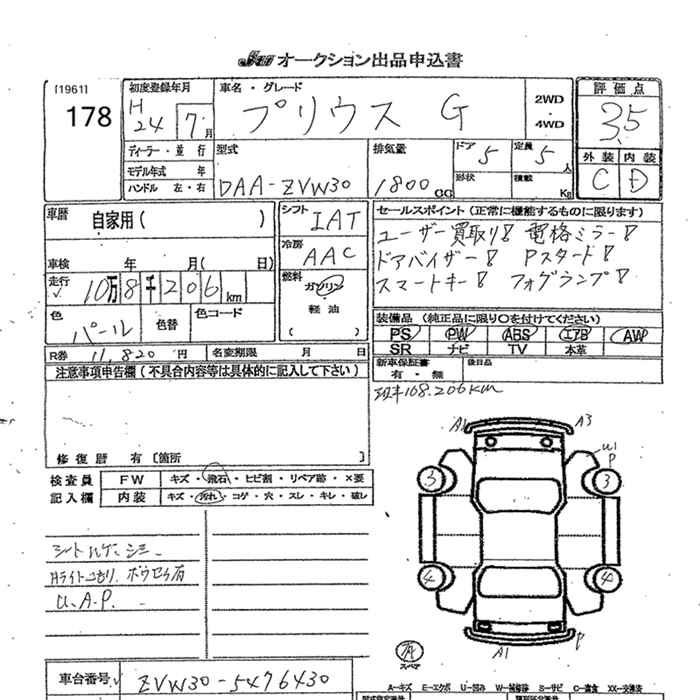 JU オークション出品申込書
[1961]
178
初度登録年月
H24 7月
車名・グレード
プリウス G
2WD・4WD
評価点
3.5
ディーラー・並行
モデル年式 年
ハンドル 左・右
型式
DAA-ZVW30
排気量
1800 CC
ドア 5
定員 5人
形状
積載 Kg
外装 内装
C D
車歴
自家用( )
シフト
IAT
冷房
AAC
セールスポイント(正常に機能するものに限ります)
ユーザー買取り! 電格ミラー!
ドアバイザー! Pスタード!
スマートキー! フォグランプ!
車検 年 月( 日)
走行
10万8千206km
燃料
ガソリン
軽油
( )
色
パール
色替
色コード
装備品(純正品に限り○を付けてください)
PS PW ABS エアB AW
SR ナビ TV 本革
R券 11,820円
名変期限 月 日
新車保証書
有・無
後日品
注意事項申告欄(不具合内容等は具体的に記入して下さい)
108.206km
修復歴 有〔箇所 〕
検査員記入欄
FW キズ・飛石・ヒビ割・リペア跡・×要
内装 キズ・汚れ・コゲ・穴・スレ・キレ・破レ
A1 A3
U1
P
3 3
4 4
A1 P
スペア
シートハゲ、シミ
Hライトくもり、ボウセイ有
U.A.P.
車台番号
ZVW30-5476430
A-キズ E-エクボ U-凹み W-補修跡 S-サビ C-腐食 XX-交換済